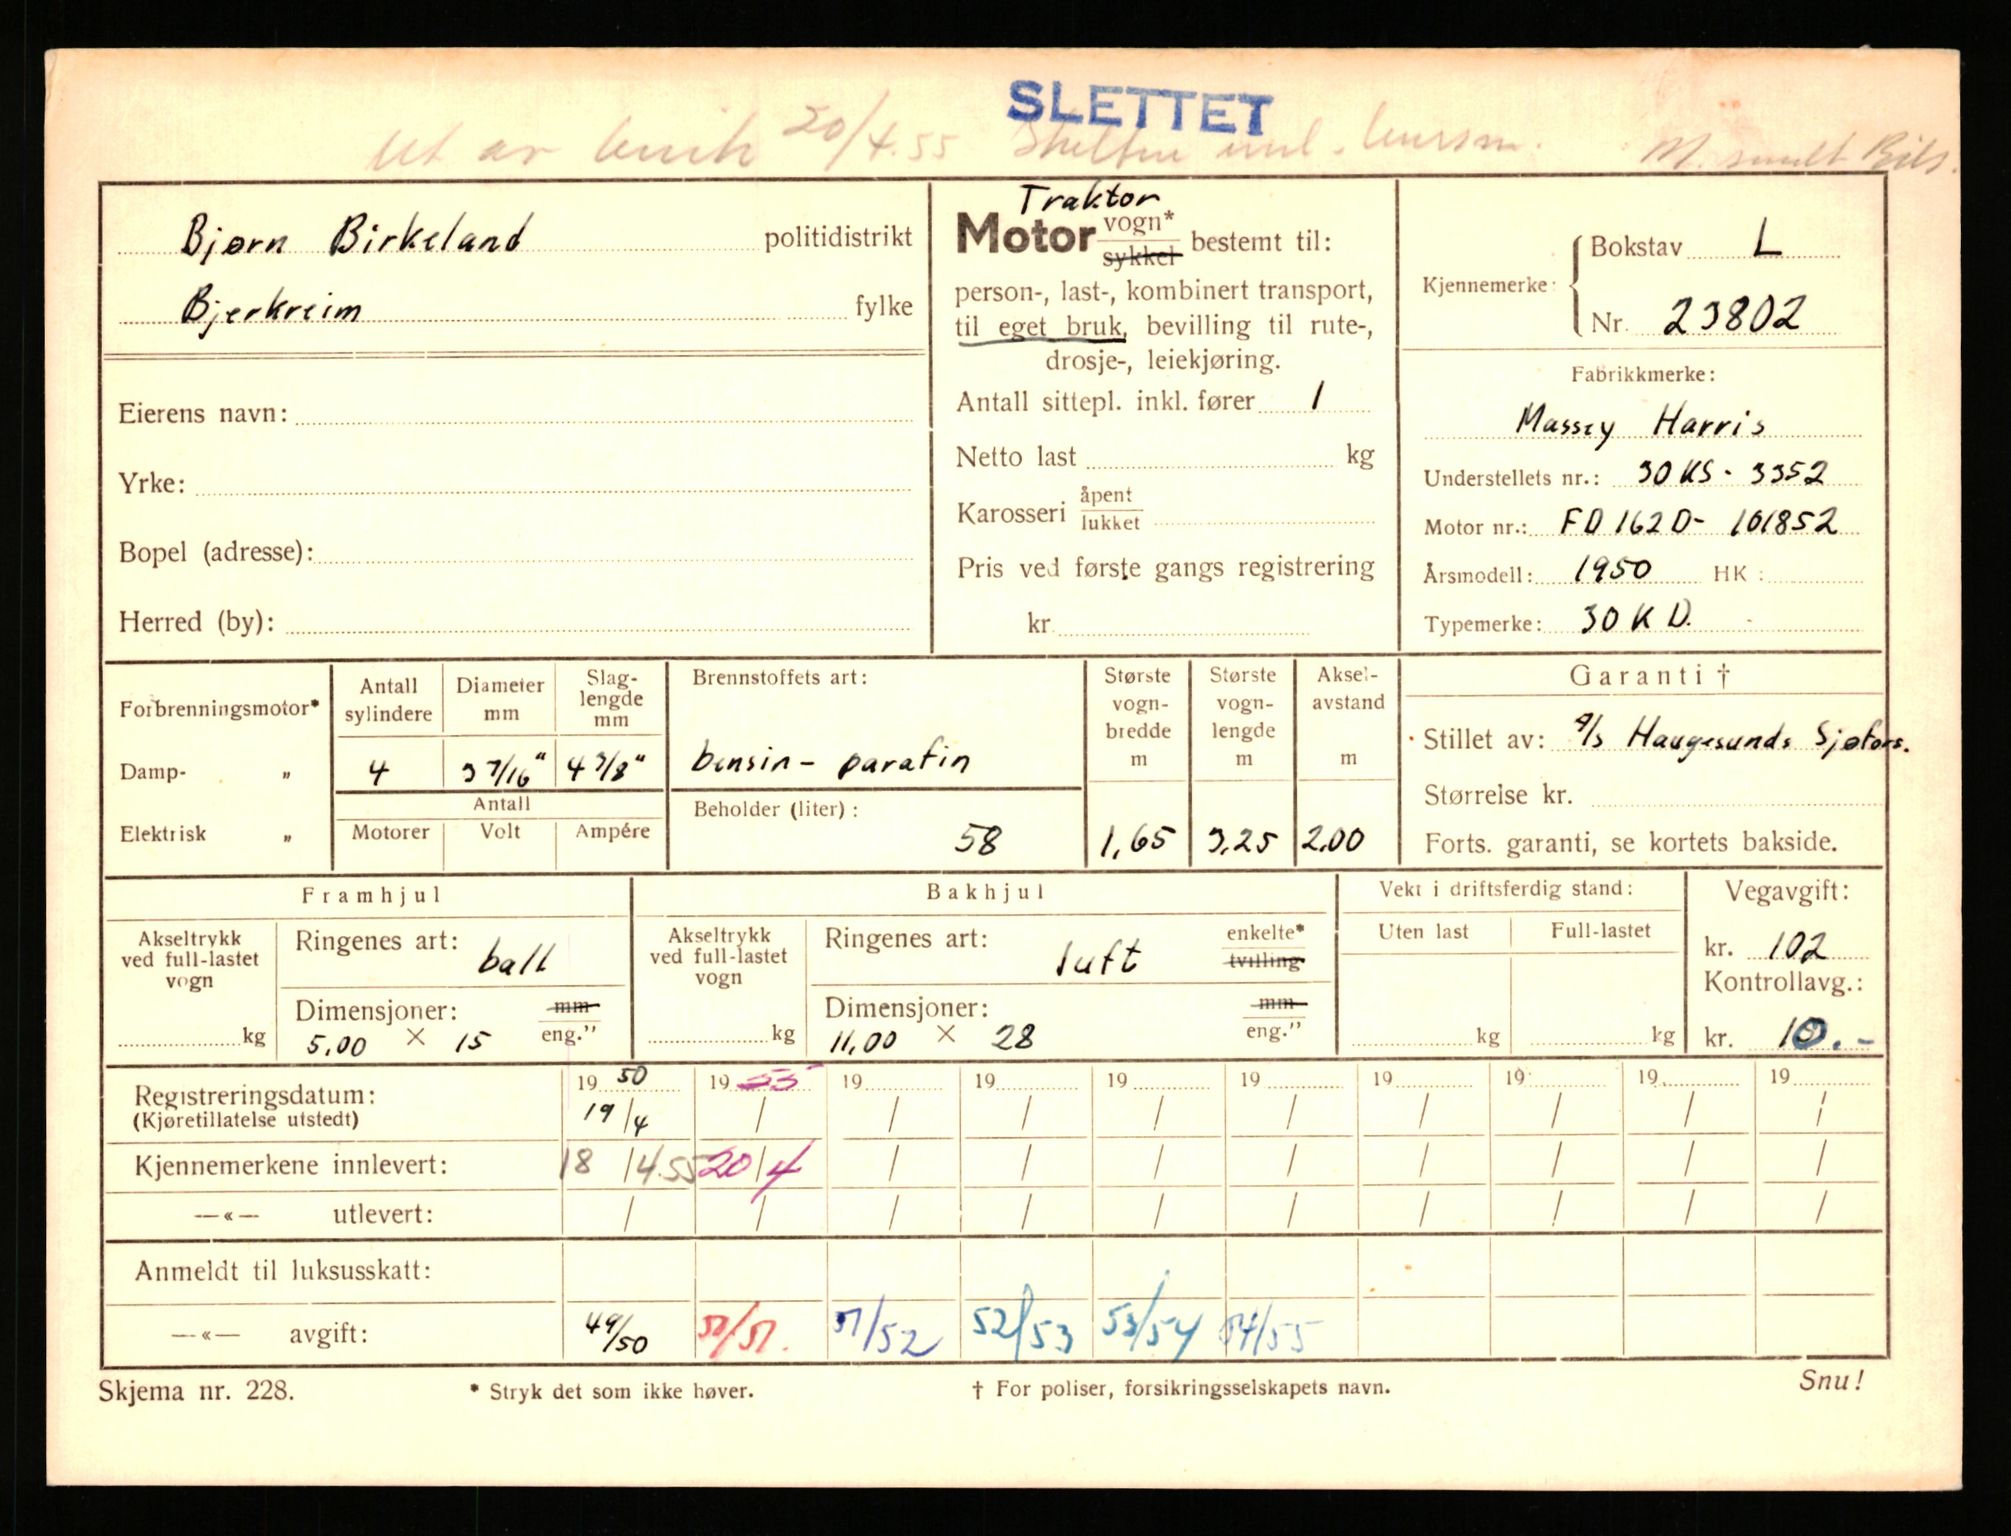 SLETTET
Ut av bruk 20/4.55 Skiltene innl.
Bjørn Birkeland politidistrikt
Bjerkreim fylke
Eierens navn:
Yrke:
Bopel (adresse):
Herred (by):
Traktor
Motor vogn* sykkel bestemt til:
person-, last-, kombinert transport,
til eget bruk, bevilling til rute-,
drosje-, leiekjøring.
Antall sittepl. inkl. fører 1
Netto last kg
Karosseri åpent lukket
Pris ved første gangs registrering
kr.
Kjennemerke: Bokstav L
Nr. 23802
Fabrikkmerke:
Massey Harris
Understellets nr.: 30 KS - 3352
Motor nr.: FD 162 D- 101852
Årsmodell: 1950 HK:
Typemerke: 30 K D.
Forbrenningsmotor*
Damp- „
Elektrisk „
Antall sylindere
4
Diameter mm
3 7/16"
Slag-lengde mm
4 3/8"
Antall
Motorer Volt Ampére
Brennstoffets art:
bensin - parafin
Beholder (liter):
58
Største vogn-bredde m
1,65
Største vogn-lengde m
3,25
Aksel-avstand m
2,00
Garanti †
Stillet av: A/S Haugesunds Sjøfors.
Størrelse kr.
Forts. garanti, se kortets bakside.
Framhjul
Akseltrykk
ved full-lastet
vogn
kg
Ringenes art: ball
Dimensjoner: mm
5,00 × 15 eng."
Bakhjul
Akseltrykk
ved full-lastet
vogn
kg
Ringenes art: luft enkelte* tvilling
Dimensjoner: mm
11,00 × 28 eng."
Vekt i driftsferdig stand:
Uten last Full-lastet
kg kg
Vegavgift:
kr. 102
Kontrollavg.:
kr. 10.-
Registreringsdatum: 19 50 19 55 19 19 19 19 19 19 19 19
(Kjøretillatelse utstedt) 19/4 / / / / / / / / /
Kjennemerkene innlevert: 18/4.55 20/4 / / / / / / / /
—«— utlevert: / / / / / / / / / /
Anmeldt til luksusskatt:
—«— avgift: 49/50 50/51. 51/52 52/53 53/54 54/55
Skjema nr. 228. * Stryk det som ikke høver. † For poliser, forsikringsselskapets navn. Snu!